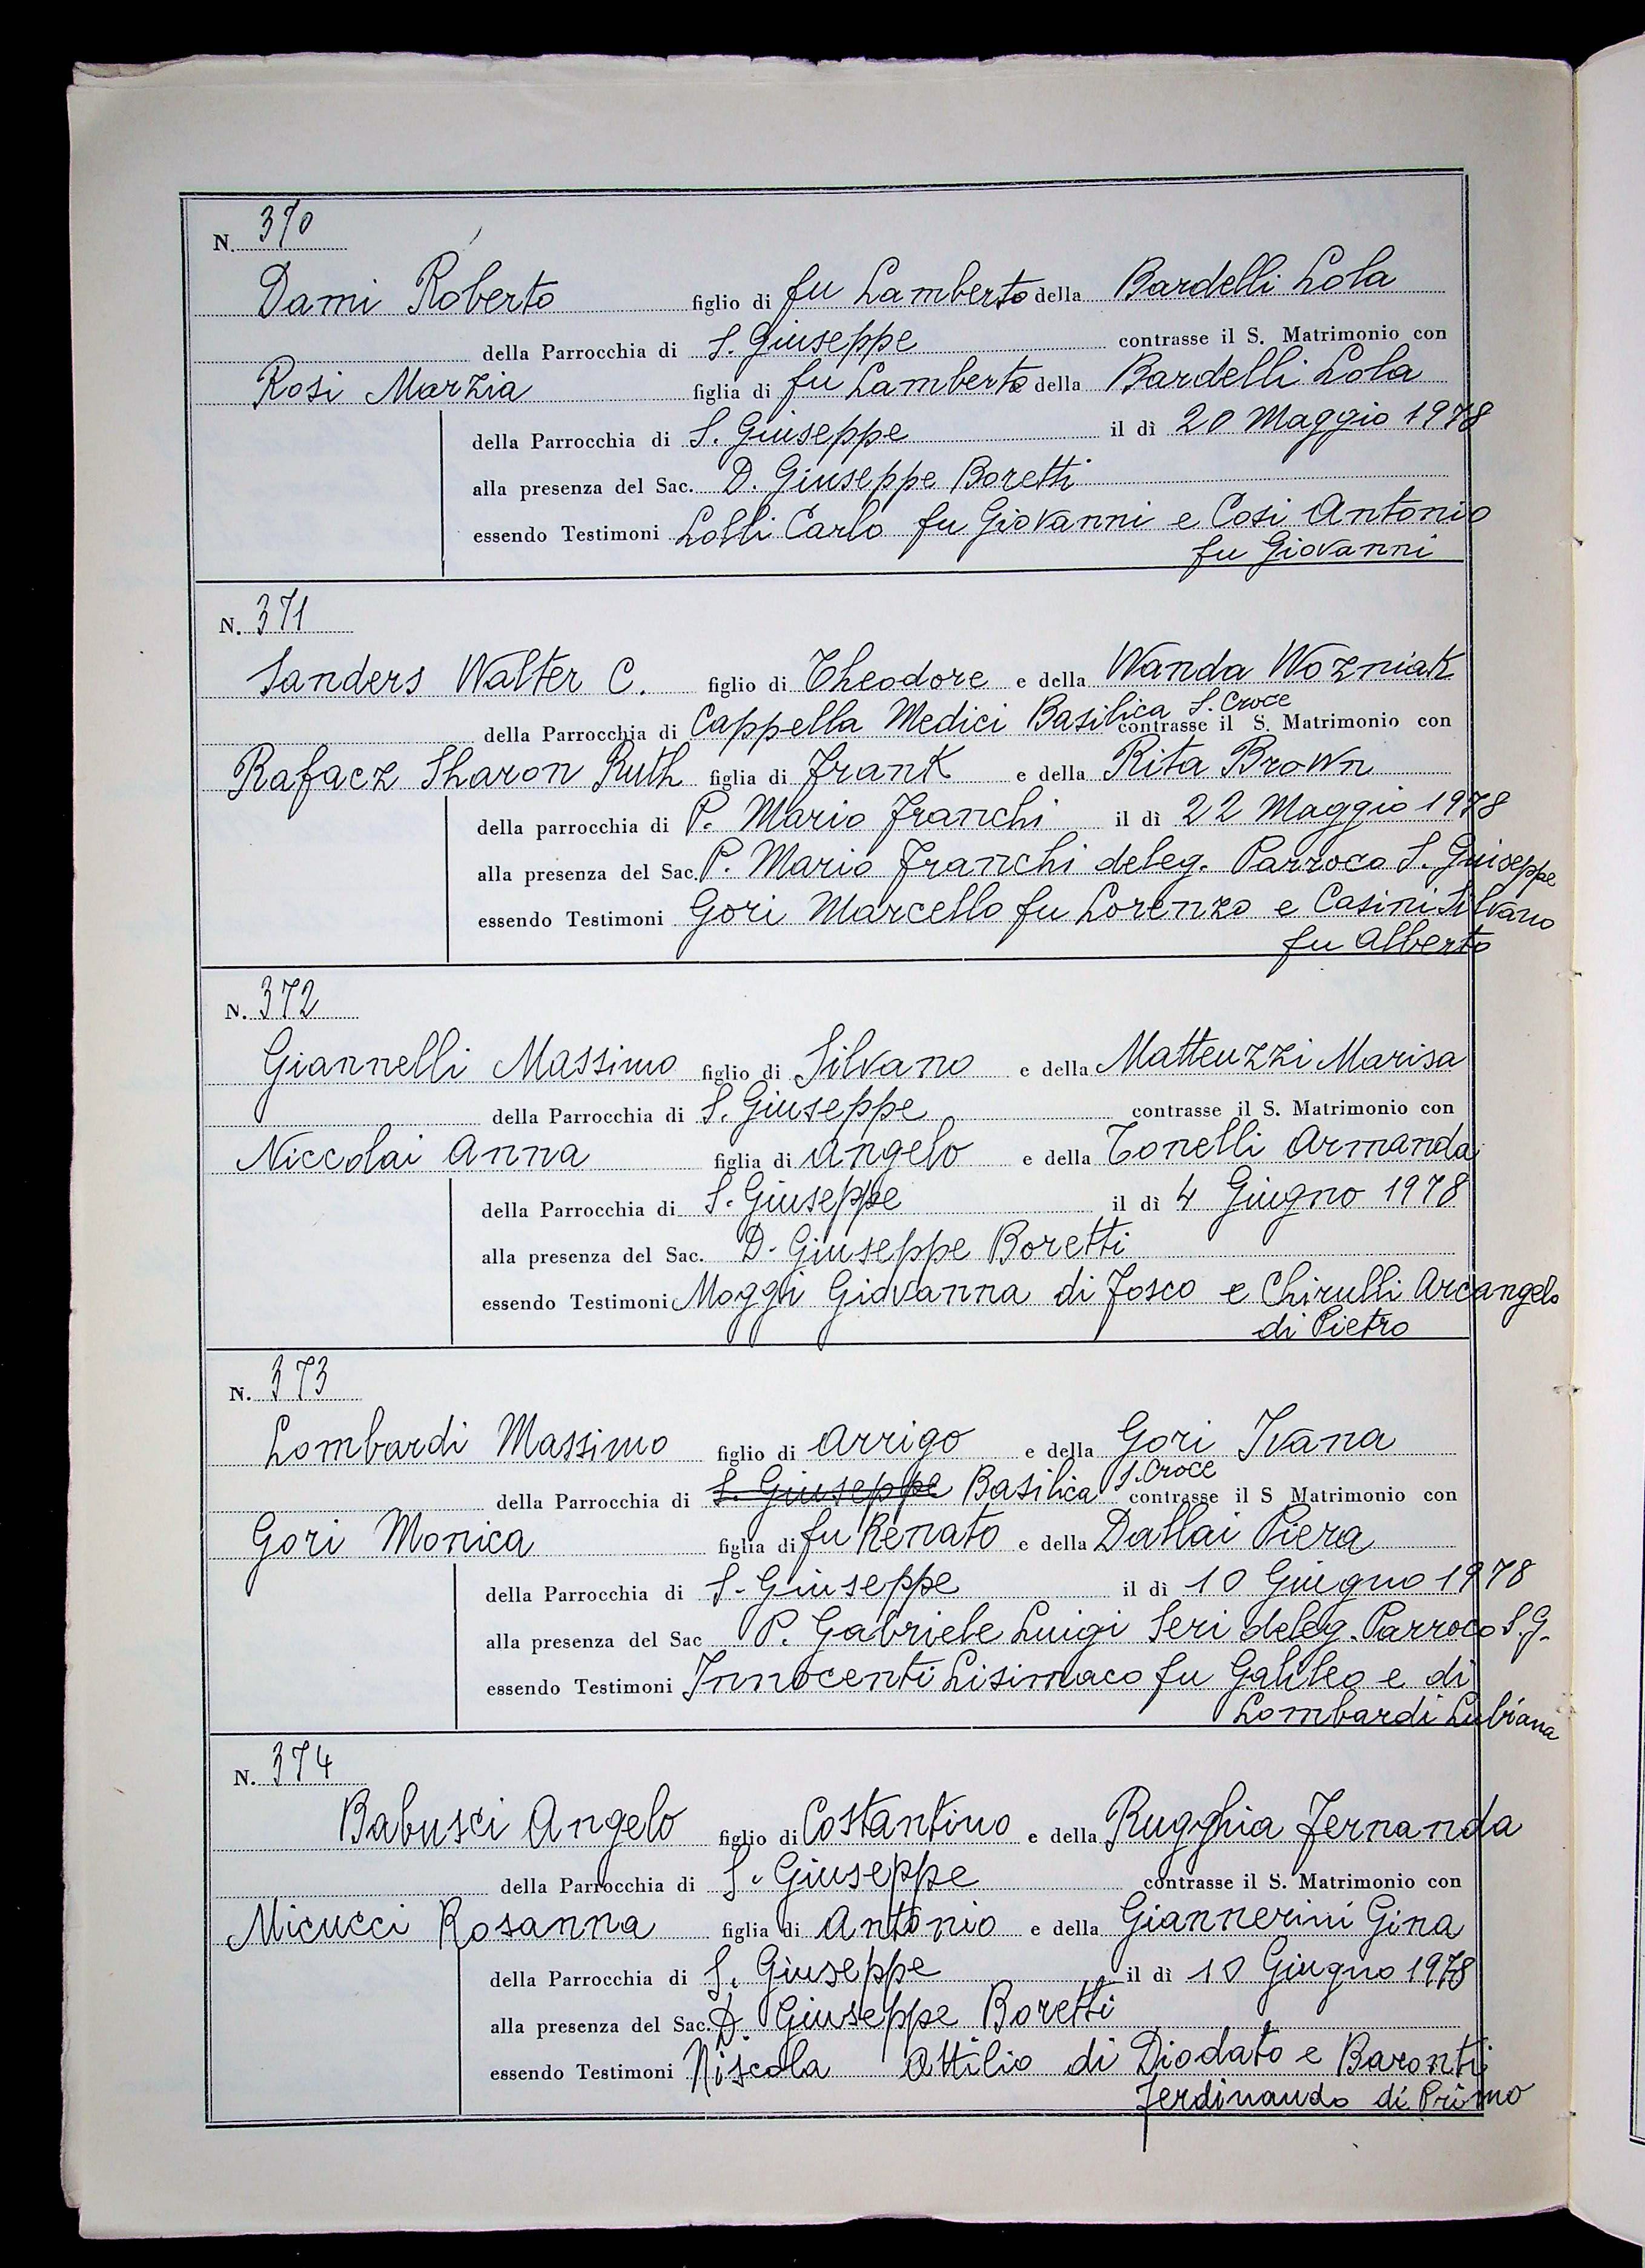 N. 370
Dami Roberto figlio di fu Lamberto della Bardelli Lola
della Parrocchia di S. Giuseppe contrasse il S. Matrimonio con
Rosi Marzia figlia di fu Lamberto della Bardelli Lola
della Parrocchia di S. Giuseppe il dì 20 Maggio 1978
alla presenza del Sac. D. Giuseppe Boretti
essendo Testimoni Lolli Carlo fu Giovanni e Cosi Antonio
fu Giovanni
N. 371
Sanders Walter C. figlio di Theodore e della Wanda Wozniak
della Parrocchia di Cappella Medici Basilica S. Croce contrasse il S. Matrimonio con
Rafacz Sharon Ruth figlia di Frank e della Rita Brown
della parrocchia di P. Mario Franchi il dì 22 Maggio 1978
alla presenza del Sac. P. Mario Franchi deleg. Parroco S. Giuseppe
essendo Testimoni Gori Marcello fu Lorenzo e Casini Silvano
fu Alberto
N. 372
Giannelli Massimo figlio di Silvano e della Matteuzzi Marisa
della Parrocchia di S. Giuseppe contrasse il S. Matrimonio con
Niccolai Anna figlia di Angelo e della Tonelli Armanda
della Parrocchia di S. Giuseppe il dì 4 Giugno 1978
alla presenza del Sac. D. Giuseppe Boretti
essendo Testimoni Moggi Giovanna di Fosco e Chirulli Arcangelo
di Pietro
N. 373
Lombardi Massimo figlio di Arrigo e della Gori Ivana
della Parrocchia di S. Giuseppe Basilica S. Croce contrasse il S Matrimonio con
Gori Monica figlia di fu Renato e della Dallai Piera
della Parrocchia di S. Giuseppe il dì 10 Giugno 1978
alla presenza del Sac P. Gabriele Luigi Seri deleg. Parroco S.G.
essendo Testimoni Innocenti Lisimaco fu Galileo e di
Lombardi Lubiana
N. 374
Babusci Angelo figlio di Costantino e della Rugghia Fernanda
della Parrocchia di S. Giuseppe contrasse il S. Matrimonio con
Micucci Rosanna figlia di Antonio e della Giannerini Gina
della Parrocchia di S. Giuseppe il dì 10 Giugno 1978
alla presenza del Sac. D. Giuseppe Boretti
essendo Testimoni Niscola Attilio di Diodato e Baronti
Ferdinando di Primo